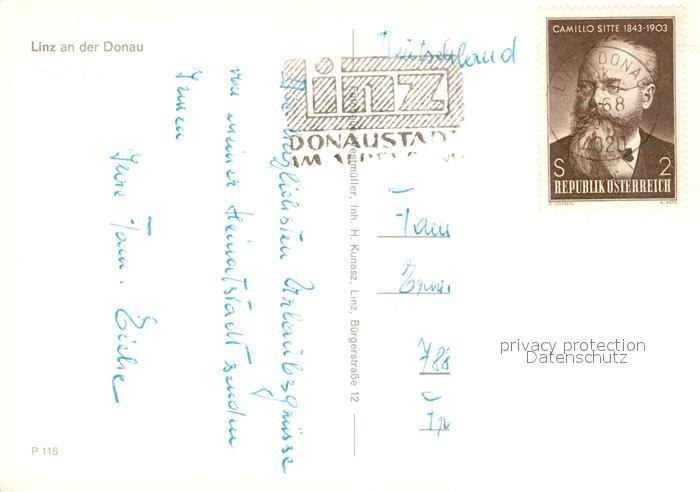 Linz an der Donau
Deutschland
CAMILLO SITTE 1843-1903
S 2
REPUBLIK ÖSTERREICH
LINZ DONAU
68
4020
linz
DONAUSTADT
AM
Die herzlichsten Urlaubsgrüsse
von meiner Heimatstadt senden
Ihnen
Ihre Fam.
Inh. H. Kunasz, Linz, Bürgerstraße 12
Fam
788
privacy protection
Datenschutz
P 116